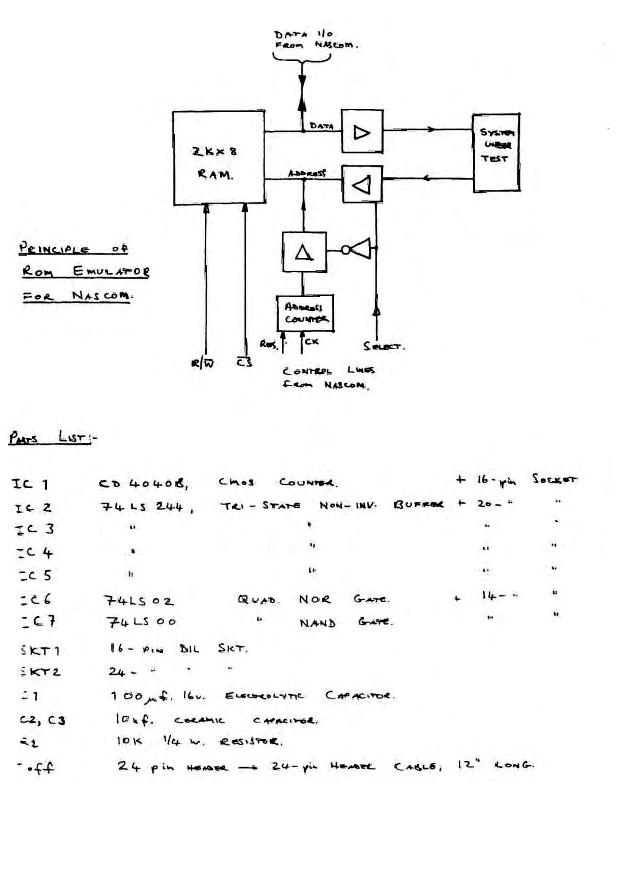 DATA I/O
FROM NASCOM.
DATA
2K×8
RAM.
SYSTEM
UNDER
TEST
ADDRESS
PRINCIPLE OF
ROM EMULATOR
FOR NASCOM.
ADDRESS
COUNTER
RES. CK
SELECT.
R/W CS
CONTROL LINES
FROM NASCOM.
PARTS LIST:-
IC 1 CD 4040B, CMOS COUNTER. + 16-pin SOCKET
IC 2 74LS 244, TRI-STATE NON-INV. BUFFER + 20- " "
IC 3 " " " "
IC 4 " " " "
IC 5 " " " "
IC6 74LS 02 QUAD. NOR GATE. + 14- " "
IC7 74LS 00 " NAND GATE. " "
SKT1 16-PIN DIL SKT.
SKT2 24- " " "
C1 100µf. 16v. ELECTROLYTIC CAPACITOR.
C2, C3 10nf. CERAMIC CAPACITOR.
R1 10K 1/4 W. RESISTOR.
off 24 pin HEADER → 24-pin HEADER CABLE, 12" LONG.